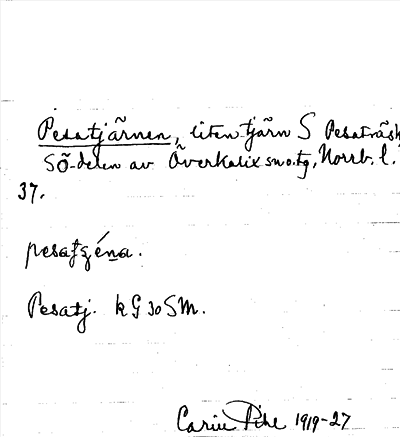 Pesatjärnen, liten tjärn S Pesaträsk
SÖ-delen av Överkalix sn o. tg, Norrb. l.
37.
pesatʒéna.
Pesatj. k G 30 SM.
Carin Pihl 1919-27